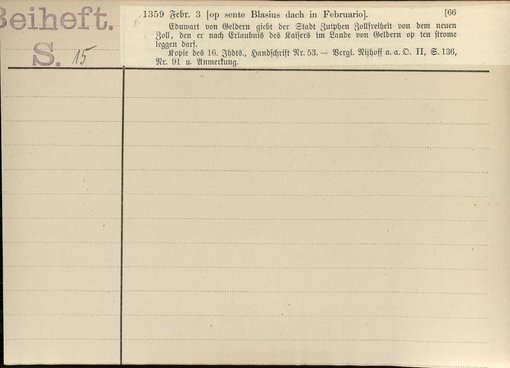 Beiheft.
S. 15
1359 Febr. 3 [op sente Blasius dach in Februario]. [66
Eduwart von Geldern giebt der Stadt Zutphen Zollfreiheit von dem neuen
Zoll, den er nach Erlaubnis des Kaisers im Lande von Geldern op ten strome
leggen darf.
Kopie des 16. Jhdts., Handschrift Nr. 53. — Vergl. Nijhoff a. a. O. II, S. 136,
Nr. 91 u. Anmerkung.